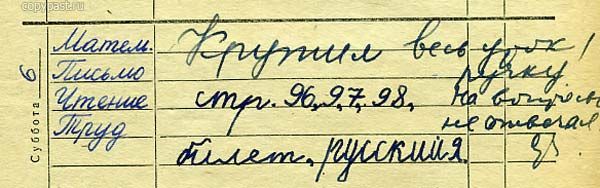 copypast.ru
Суббота 6
Матем. Крутил весь урок
Письмо ручку
Чтение стр. 96, 97, 98, на вопросы
Труд не отвечал
билет, русский я.